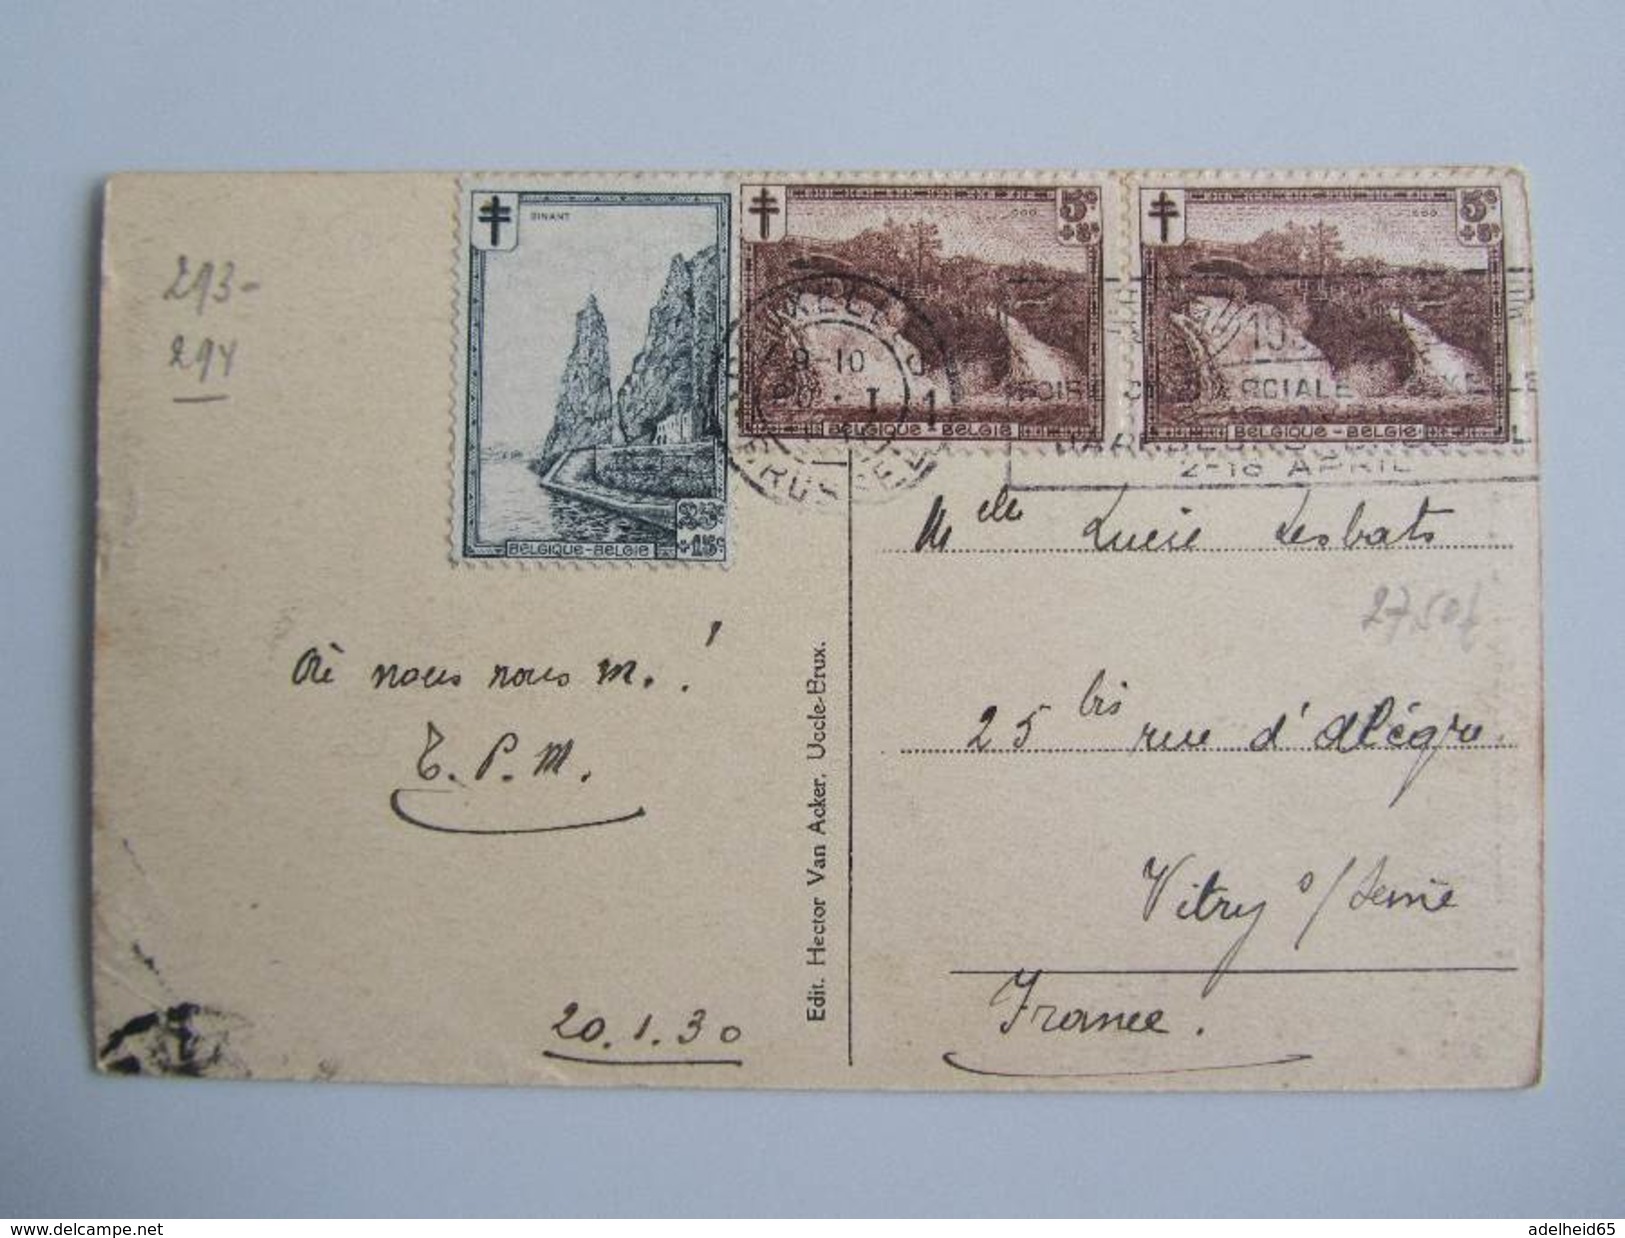 293-
294
DINANT
25c
+15c
BELGIQUE-BELGIE
5c
+5c
COO
BELGIQUE-BELGIE
5c
+5c
COO
BELGIQUE-BELGIE
9-10
1
2-16 APRIL
Mlle Lucie Lesbats
27,50f
25 bis rue d'Alégre.
Vitry s/Seine
France.
nous nous m.!
T.P.M.
20.1.30
Edit. Hector Van Acker, Uccle-Brux.
delcampe.net
adelheid65